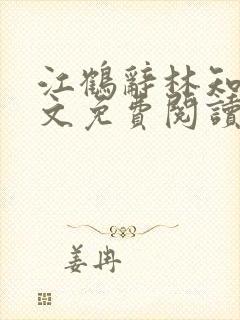 江鶴辭林知
文免費閱讀
姜冉